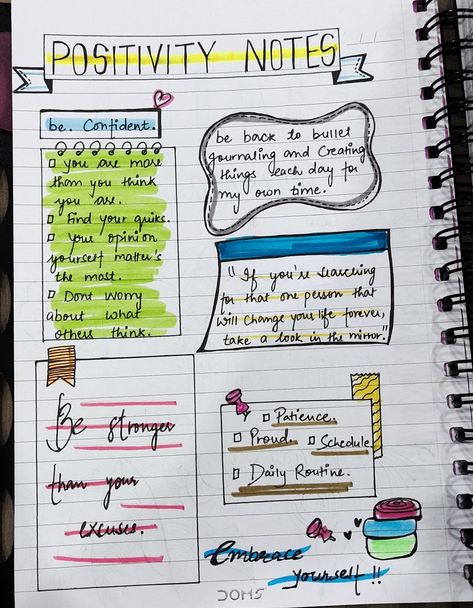 POSITIVITY NOTES
be. Confident.
□ you are more
than you think
you are.
□ Find your quiks.
□ Your opinion
yourself matter's
the most.
□ Dont worry
about what
others think.
be back to bullet
journaling and Creating
things each day for
my own time.
"If you're searching
for that one person that
will change you life forever,
take a look in the mirror."
Be stronger
than your
excuses.
□ Patience.
□ Proud. □ Schedule
□ Daily Routine.
Embrace
yourself !!
DOMS